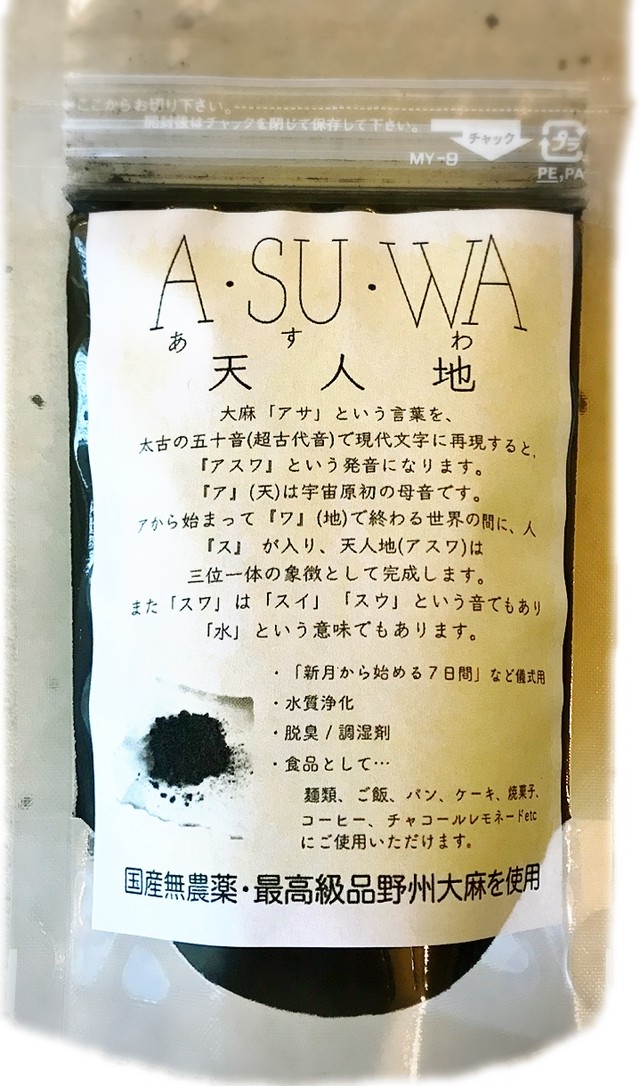 ここからお切り下さい。
開封後はチャックを閉じて保存して下さい。
チャック
プラ
MY-9
PE,PA
A・SU・WA
あ す わ
天 人 地
大麻「アサ」という言葉を、
太古の五十音(超古代音)で現代文字に再現すると、
『アスワ』という発音になります。
『ア』(天)は宇宙原初の母音です。
アから始まって『ワ』(地)で終わる世界の間に、人
『ス』 が入り、天人地(アスワ)は
三位一体の象徴として完成します。
また「スワ」は「スイ」「スウ」という音でもあり
「水」という意味でもあります。
・「新月から始める7日間」など儀式用
・水質浄化
・脱臭 / 調湿剤
・食品として…
麺類、ご飯、パン、ケーキ、焼菓子、
コーヒー、チャコールレモネードetc
にご使用いただけます。
国産無農薬・最高級品野州大麻を使用